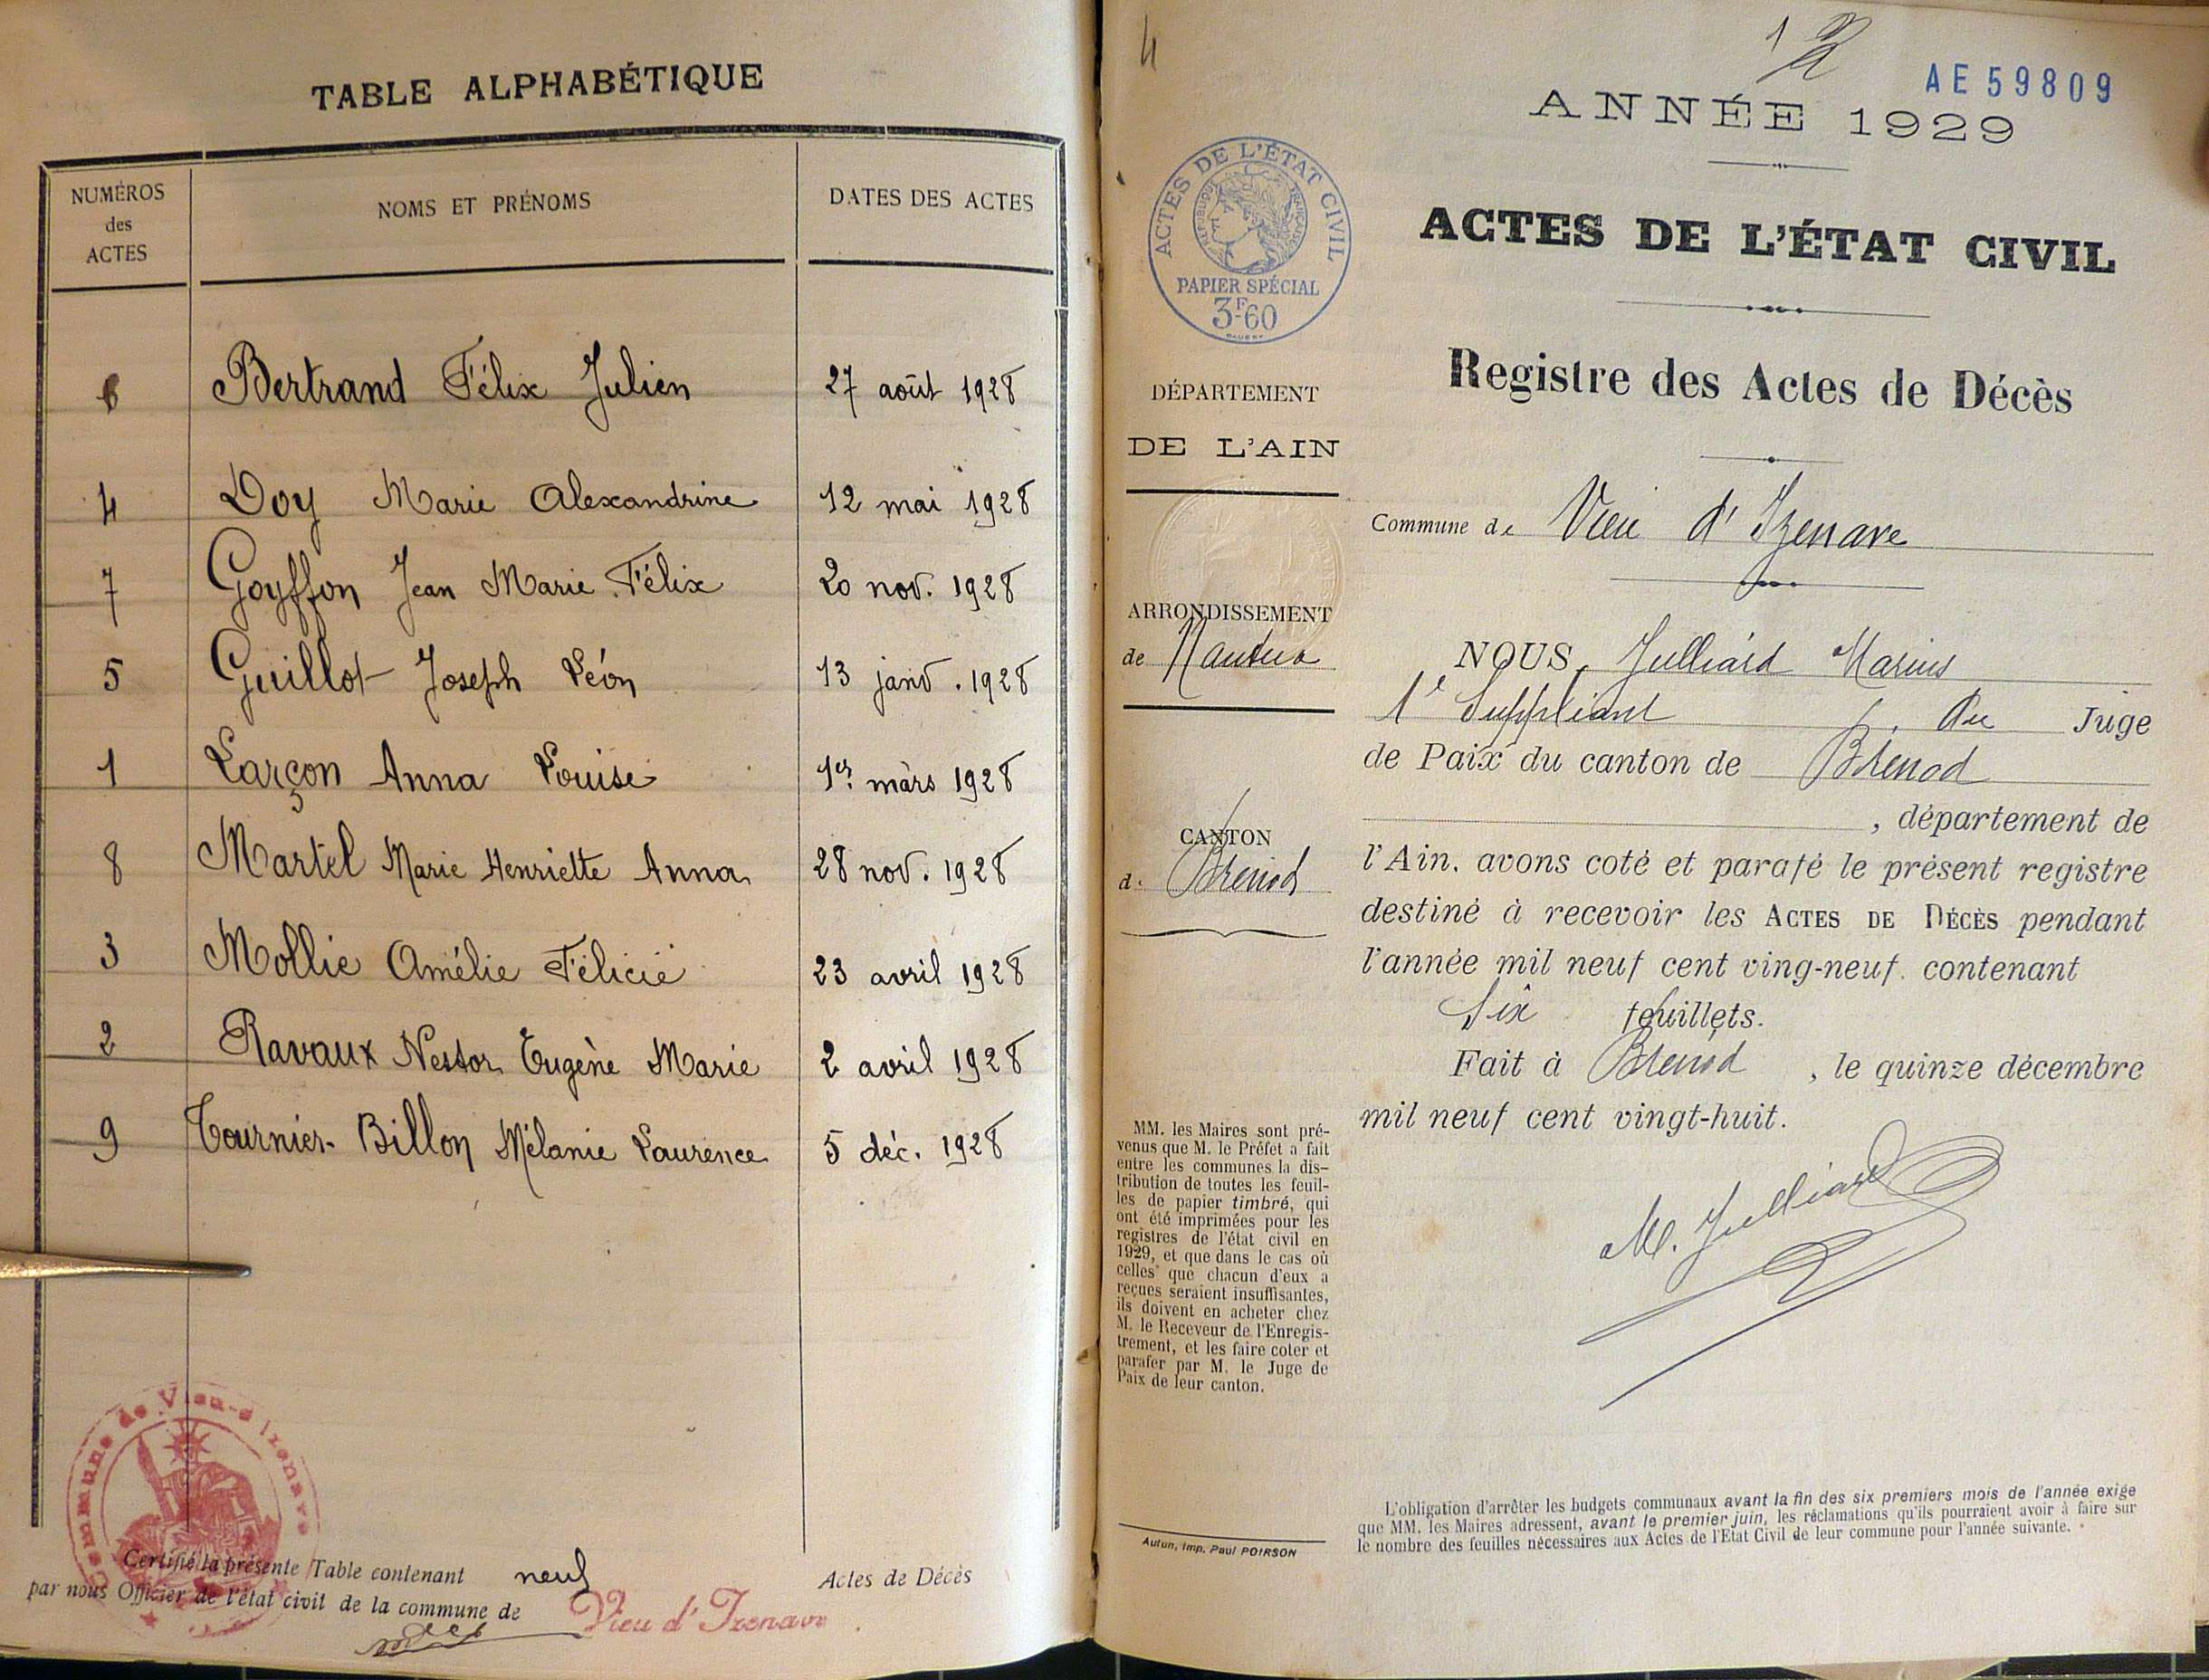 TABLE ALPHABÉTIQUE
NUMÉROS
des
ACTES
NOMS ET PRÉNOMS
DATES DES ACTES
6 Bertrand Félix Julien 27 août 1928
4 Doy Marie Alexandrine 12 mai 1928
7 Goyffon Jean Marie Félix 20 nov. 1928
5 Guillot Joseph Léon 13 janv. 1928
1 Larçon Anna Louise 1er mars 1928
8 Martel Marie Henriette Anna 28 nov. 1928
3 Mollie Amélie Félicie 23 avril 1928
2 Ravaux Nestor Eugène Marie 2 avril 1928
9 Tournier-Billon Mélanie Laurence 5 déc. 1928
Commune de Vieu-d'Izenave
Certifié la présente Table contenant neuf Actes de Décès
par nous Officier de l'état civil de la commune de Vieu d'Izenave
4
1
AE 59809
ANNÉE 1929
ACTES DE L'ÉTAT CIVIL
RÉPUBLIQUE FRANÇAISE
PAPIER SPÉCIAL
3F60
ACTES DE L'ÉTAT CIVIL
Registre des Actes de Décès
DÉPARTEMENT
DE L'AIN
Commune de Vieu d'Izenave
ARRONDISSEMENT
de Nantua
CANTON
d. Brenod
NOUS, Julliard Marius
1e Suppléant du Juge
de Paix du canton de Brénod
, département de
l'Ain, avons coté et parafé le présent registre
destiné à recevoir les ACTES DE DÉCÈS pendant
l'année mil neuf cent ving-neuf. contenant
Six feuillets.
Fait à Brenod , le quinze décembre
mil neuf cent vingt-huit.
M. Julliard
MM. les Maires sont pré-
venus que M. le Préfet a fait
entre les communes la dis-
tribution de toutes les feuil-
les de papier timbré, qui
ont été imprimées pour les
registres de l'état civil en
1929, et que dans le cas où
celles que chacun d'eux a
reçues seraient insuffisantes,
ils doivent en acheter chez
M. le Receveur de l'Enregis-
trement, et les faire coter et
parafer par M. le Juge de
Paix de leur canton.
Autun, Imp. Paul POIRSON
L'obligation d'arrêter les budgets communaux avant la fin des six premiers mois de l'année exige
que MM. les Maires adressent, avant le premier juin, les réclamations qu'ils pourraient avoir à faire sur
le nombre des feuilles nécessaires aux Actes de l'Etat Civil de leur commune pour l'année suivante.